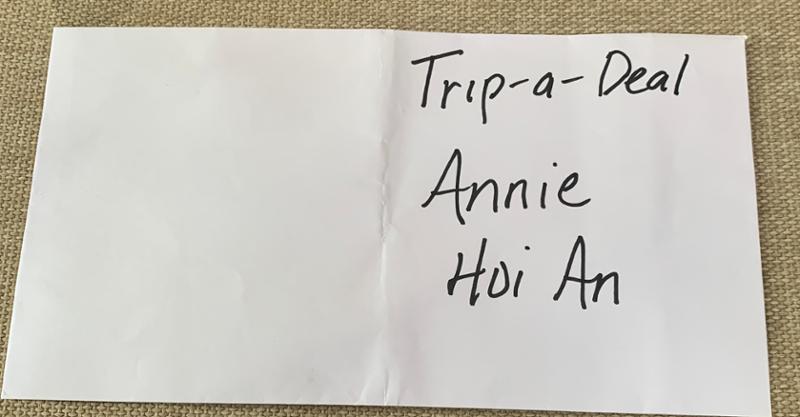 Trip-a-Deal
Annie
Hoi An